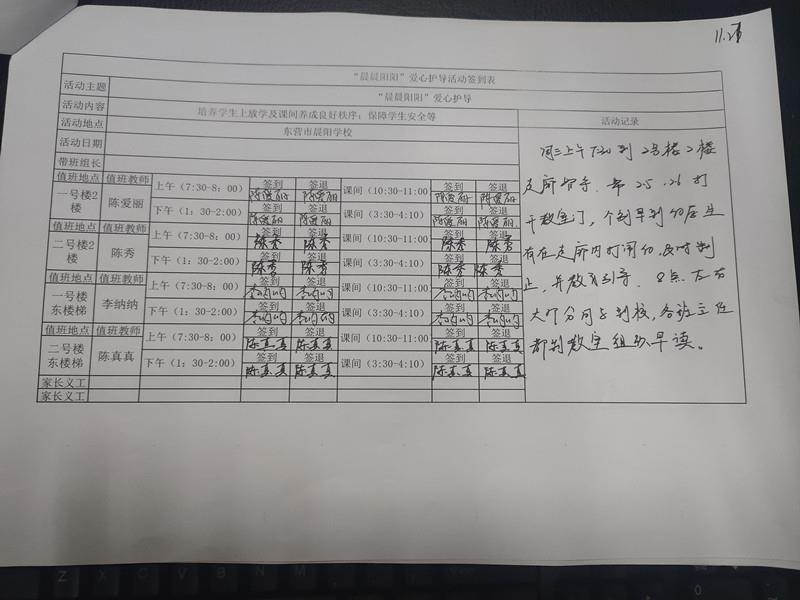 11.2
"晨晨阳阳"爱心护导活动签到表
活动主题 "晨晨阳阳"爱心护导
活动内容 培养学生上放学及课间养成良好秩序；保障学生安全等
活动地点 东营市晨阳学校 活动记录
活动日期
带班组长
值班地点 值班教师 上午（7:30-8：00） 签到 签退 课间（10:30-11:00 签到 签退
一号楼2楼 陈爱丽 陈爱丽 陈爱丽 陈爱丽 陈爱丽
下午（1：30-2:00） 签到 签退 课间（3:30-4:10） 签到 签退
陈爱丽 陈爱丽 陈爱丽 陈爱丽
值班地点 值班教师 上午（7:30-8：00） 签到 签退 课间（10:30-11:00 签到 签退
二号楼2楼 陈秀 陈秀 陈秀 陈秀 陈秀
下午（1：30-2:00） 签到 签退 课间（3:30-4:10） 签到 签退
陈秀 陈秀 陈秀 陈秀
值班地点 值班教师 上午（7:30-8：00） 签到 签退 课间（10:30-11:00 签到 签退
一号楼东楼梯 李纳纳 李纳纳 李纳纳 李纳纳 李纳纳
下午（1：30-2:00） 签到 签退 课间（3:30-4:10） 签到 签退
李纳纳 李纳纳 李纳纳 李纳纳
值班地点 值班教师 上午（7:30-8：00） 签到 签退 课间（10:30-11:00 签到 签退
二号楼东楼梯 陈真真 陈真真 陈真真 陈真真 陈真真
下午（1：30-2:00） 签到 签退 课间（3:30-4:10） 签到 签退
陈真真 陈真真 陈真真 陈真真
家长义工
家长义工
周三上午7:30到2号楼2楼
走廊督导.帮25.26打
开教室门，个别早到的学生
有在走廊内打闹的,及时制
止,并教育引导.8点左右
大部分同学到校,各班主任
都到教室组织早读。